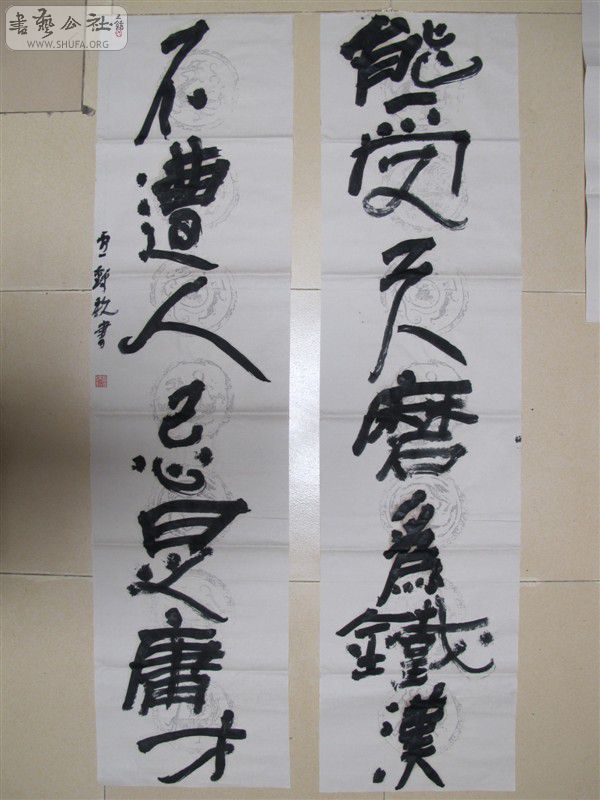 能受天磨為鐵漢
不遭人忌是庸才
書藝公社
WWW.SHUFA.ORG